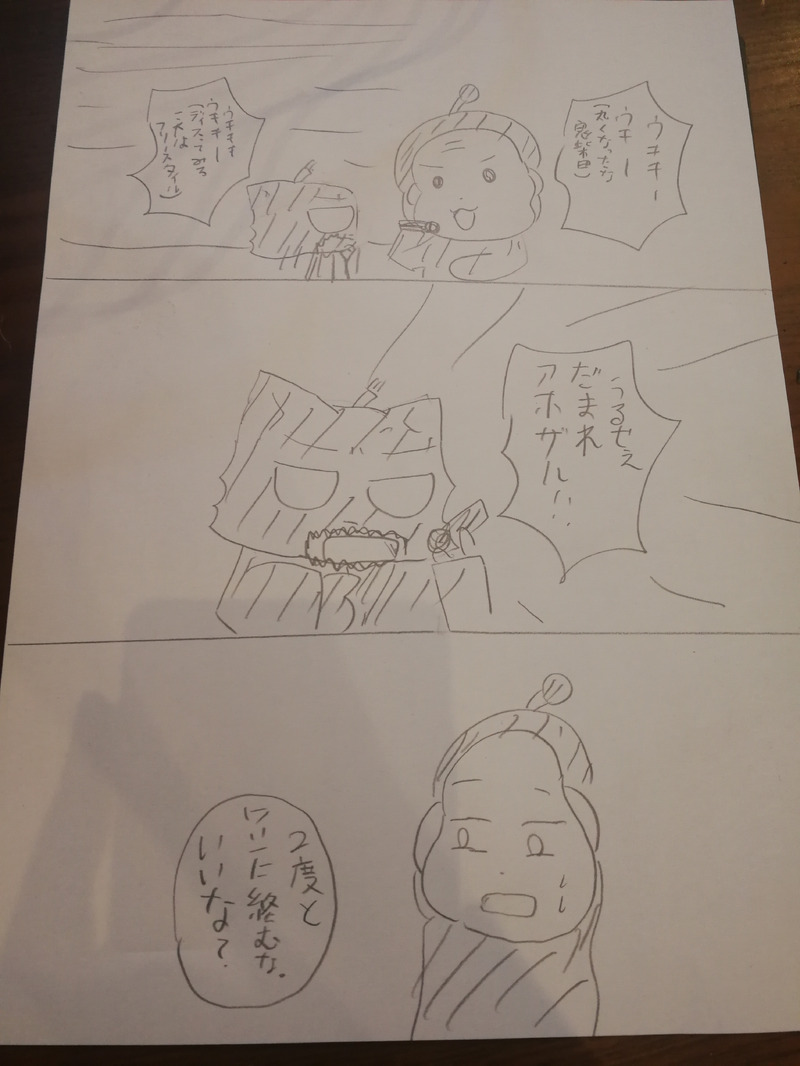 ウキキー
ウキー
(丸くなったな
ウキキキ
ウキキー
(ディスってみろ
これは
フリースタイル)
うるせぇ
だまれ
アホザル!!
2度と
に終むな。
いいな?